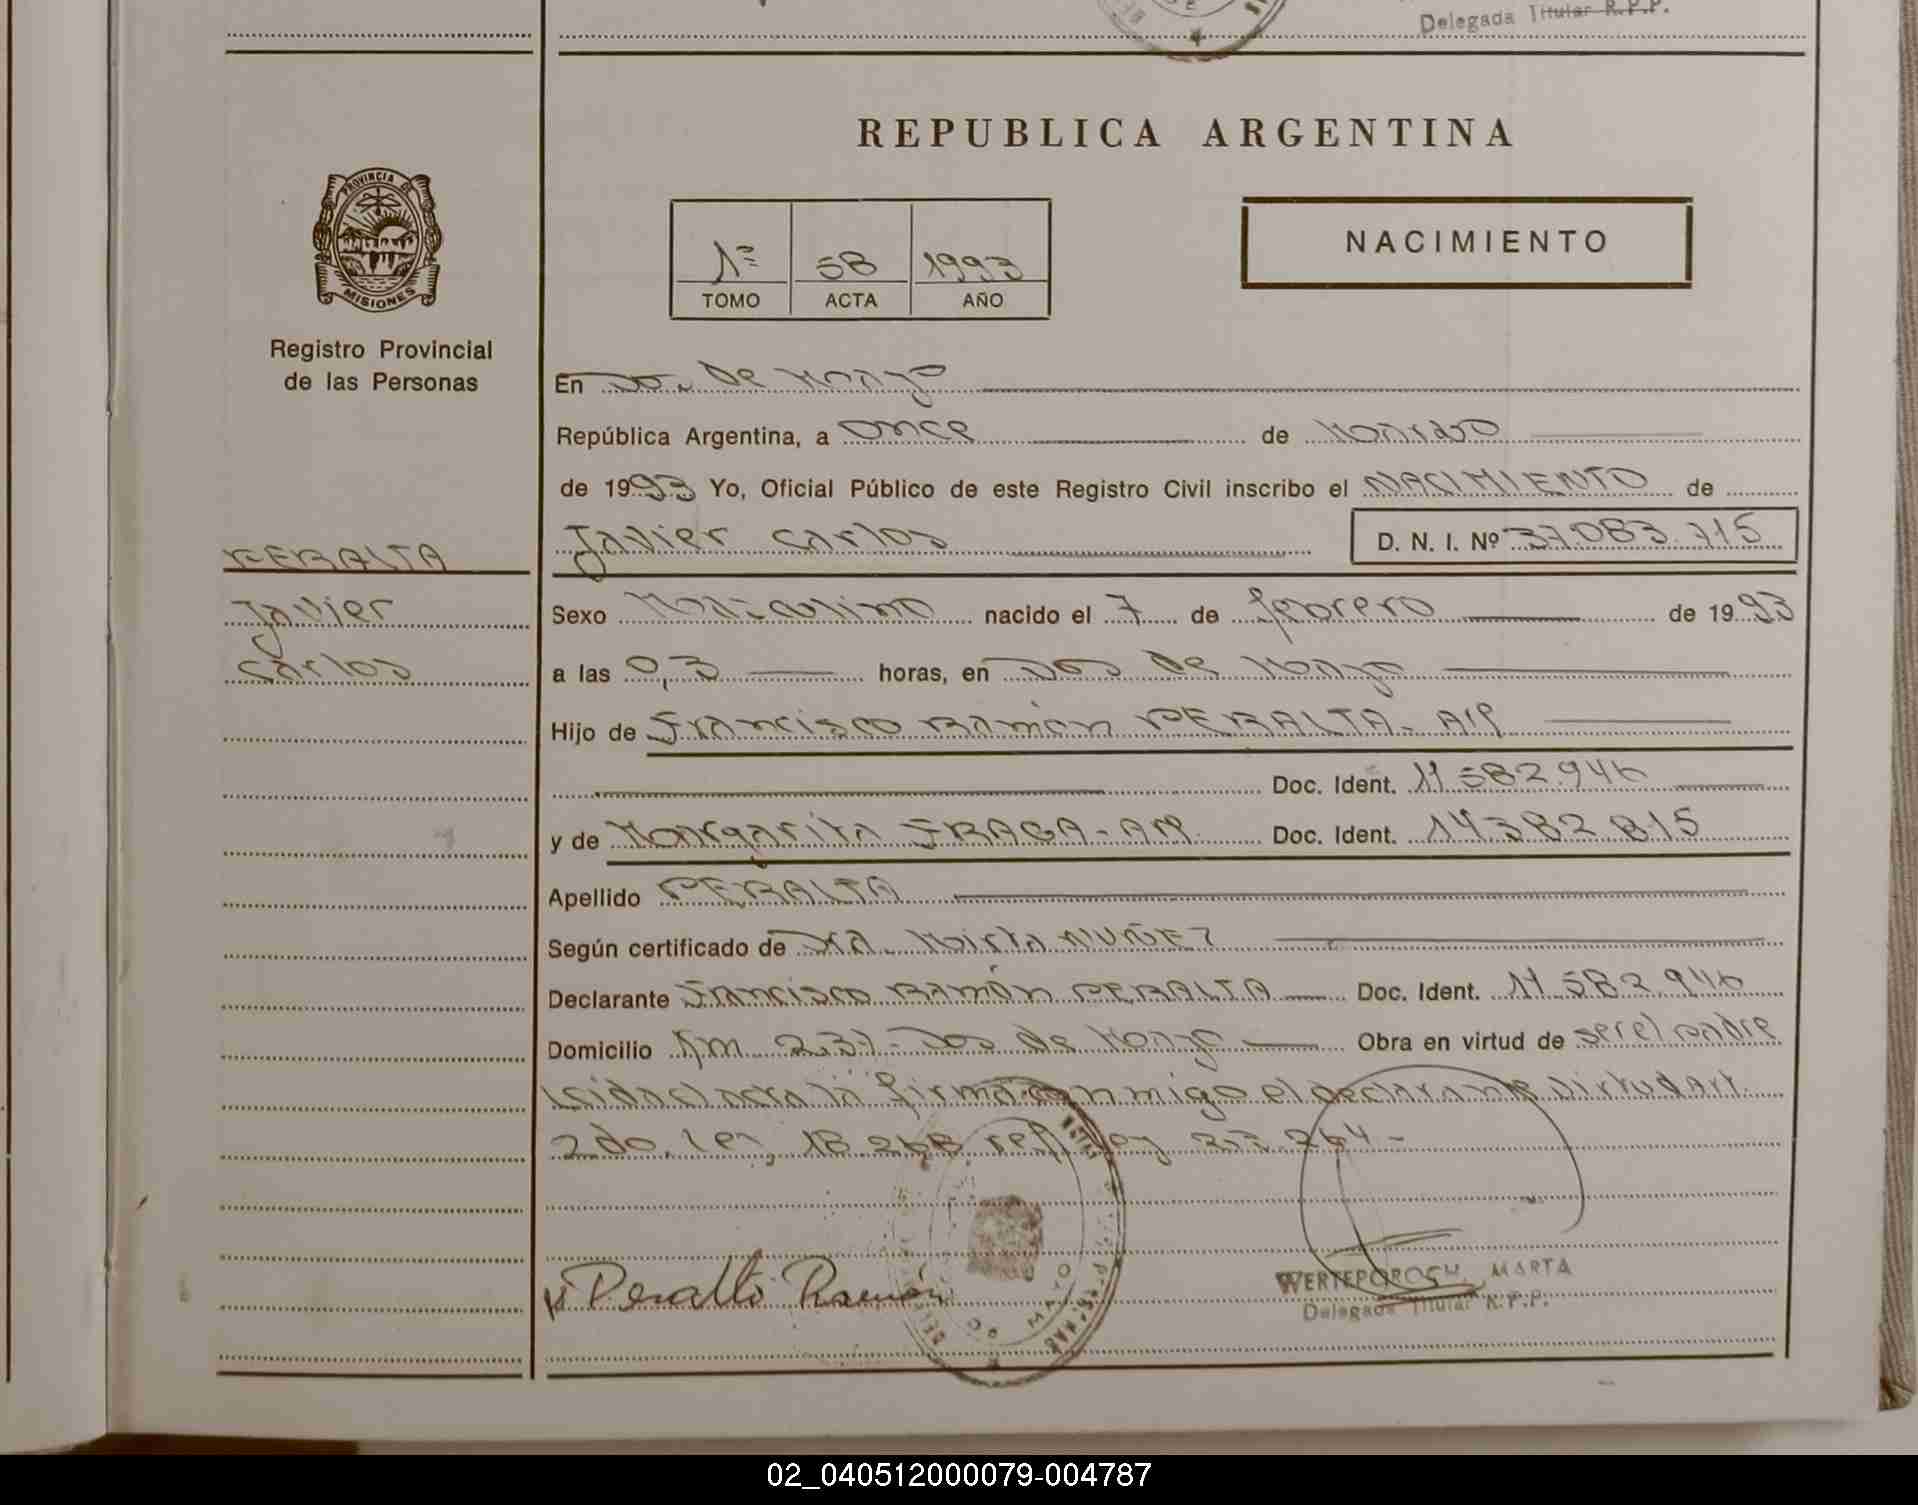 Delegada Titular R.P.P.
REPUBLICA ARGENTINA
PROVINCIA DE
MISIONES
Registro Provincial
de las Personas
1º 58 1993
TOMO ACTA AÑO
NACIMIENTO
En Dos de Mayo
República Argentina, a once de
de 1993 Yo, Oficial Público de este Registro Civil inscribo el NACIMIENTO de
Javier Carlos D. N. I. Nº 37.083.715
PERALTA
Javier
Carlos
Sexo Masculino nacido el 7 de febrero de 1993
a las 0,3 horas, en Dos de Mayo
Hijo de Francisco Ramón PERALTA - Arg
Doc. Ident. 11.582.946
y de Margarita FRAGA - Arg. Doc. Ident. 14.382.815
Apellido PERALTA
Según certificado de Dra. Mirta NUÑEZ
Declarante Francisco Ramón PERALTA Doc. Ident. 11.582.946
Domicilio Km 237 - Dos de Mayo Obra en virtud de ser el padre
Leida el acta la firma conmigo el declarante virtud art.
2do. Ley 18.248 ref. Ley 23.264 -
Peralta Ramón
WERTEPOROCH, MARTA
Delegada Titular R.P.P.
02_040512000079-004787